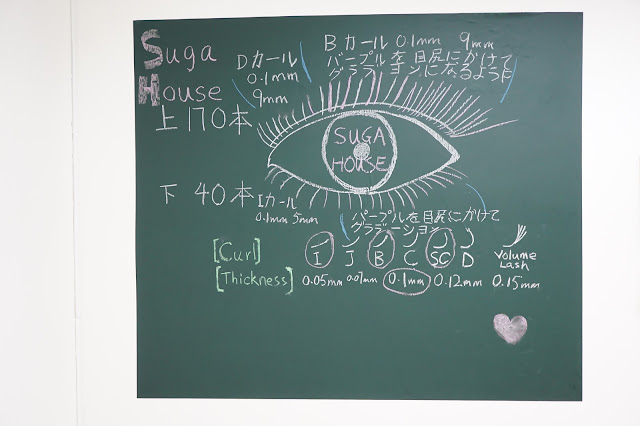 Suga
House
Dカール
0.1mm
9mm
Bカール 0.1mm 9mm
パープルを目尻にかけて
グラデーションになるように
上170本
SUGA
HOUSE
下 40本
Iカール
0.1mm 5mm
パープルを目尻にかけて
グラデーション
[Curl] I J B C SC D Volume
Lash
[Thickness] 0.05mm 0.07mm 0.1mm 0.12mm 0.15mm